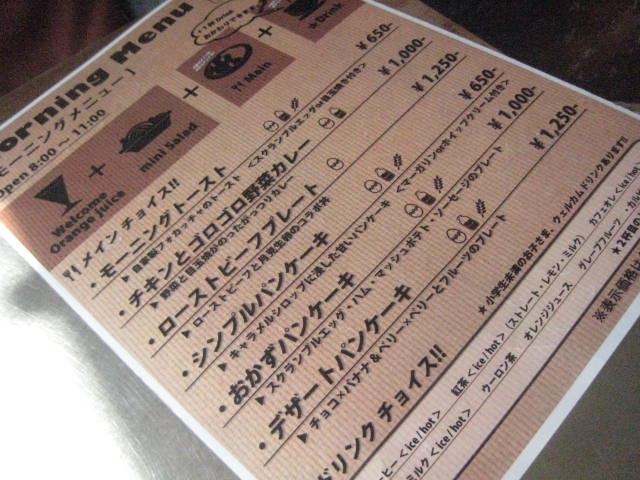 orning Menu
モーニングメニュー】
Open 8:00 ～ 11:00
Welcome
Orange juice
+
mini Salad
+
Main
+
★Drink
メインチョイス!!
・モーニングトースト ¥650-
▶自家製フォカッチャのトースト <スクランブルエッグor目玉焼き付き>
・チキンとゴロゴロ野菜カレー ¥1,000-
▶野菜と目玉焼がのったがっつりカレー
・ローストビーフプレート ¥1,250-
▶ローストビーフと月見生卵のコラボ丼
・シンプルパンケーキ ¥650-
▶キャラメルシロップに浸した甘いパンケーキ <マーガリンorホイップクリーム付き>
・おかずパンケーキ ¥1,000-
▶スクランブルエッグ・ハム・マッシュポテト・ソーセージのプレート
・デザートパンケーキ ¥1,250-
▶チョコ×バナナ&ベリー×ベリーとフルーツのプレート
★小学生未満のお子さま、ウェルカムドリンクあります!!
ドリンクチョイス!!
ーヒー <ice/hot> 紅茶 <ice/hot> (ストレート・レモン・ミルク) カフェオレ <ice/hot
ミルク <ice/hot> ウーロン茶 オレンジジュース グレープフルーツ・カ
★2杯目
※表示価格は